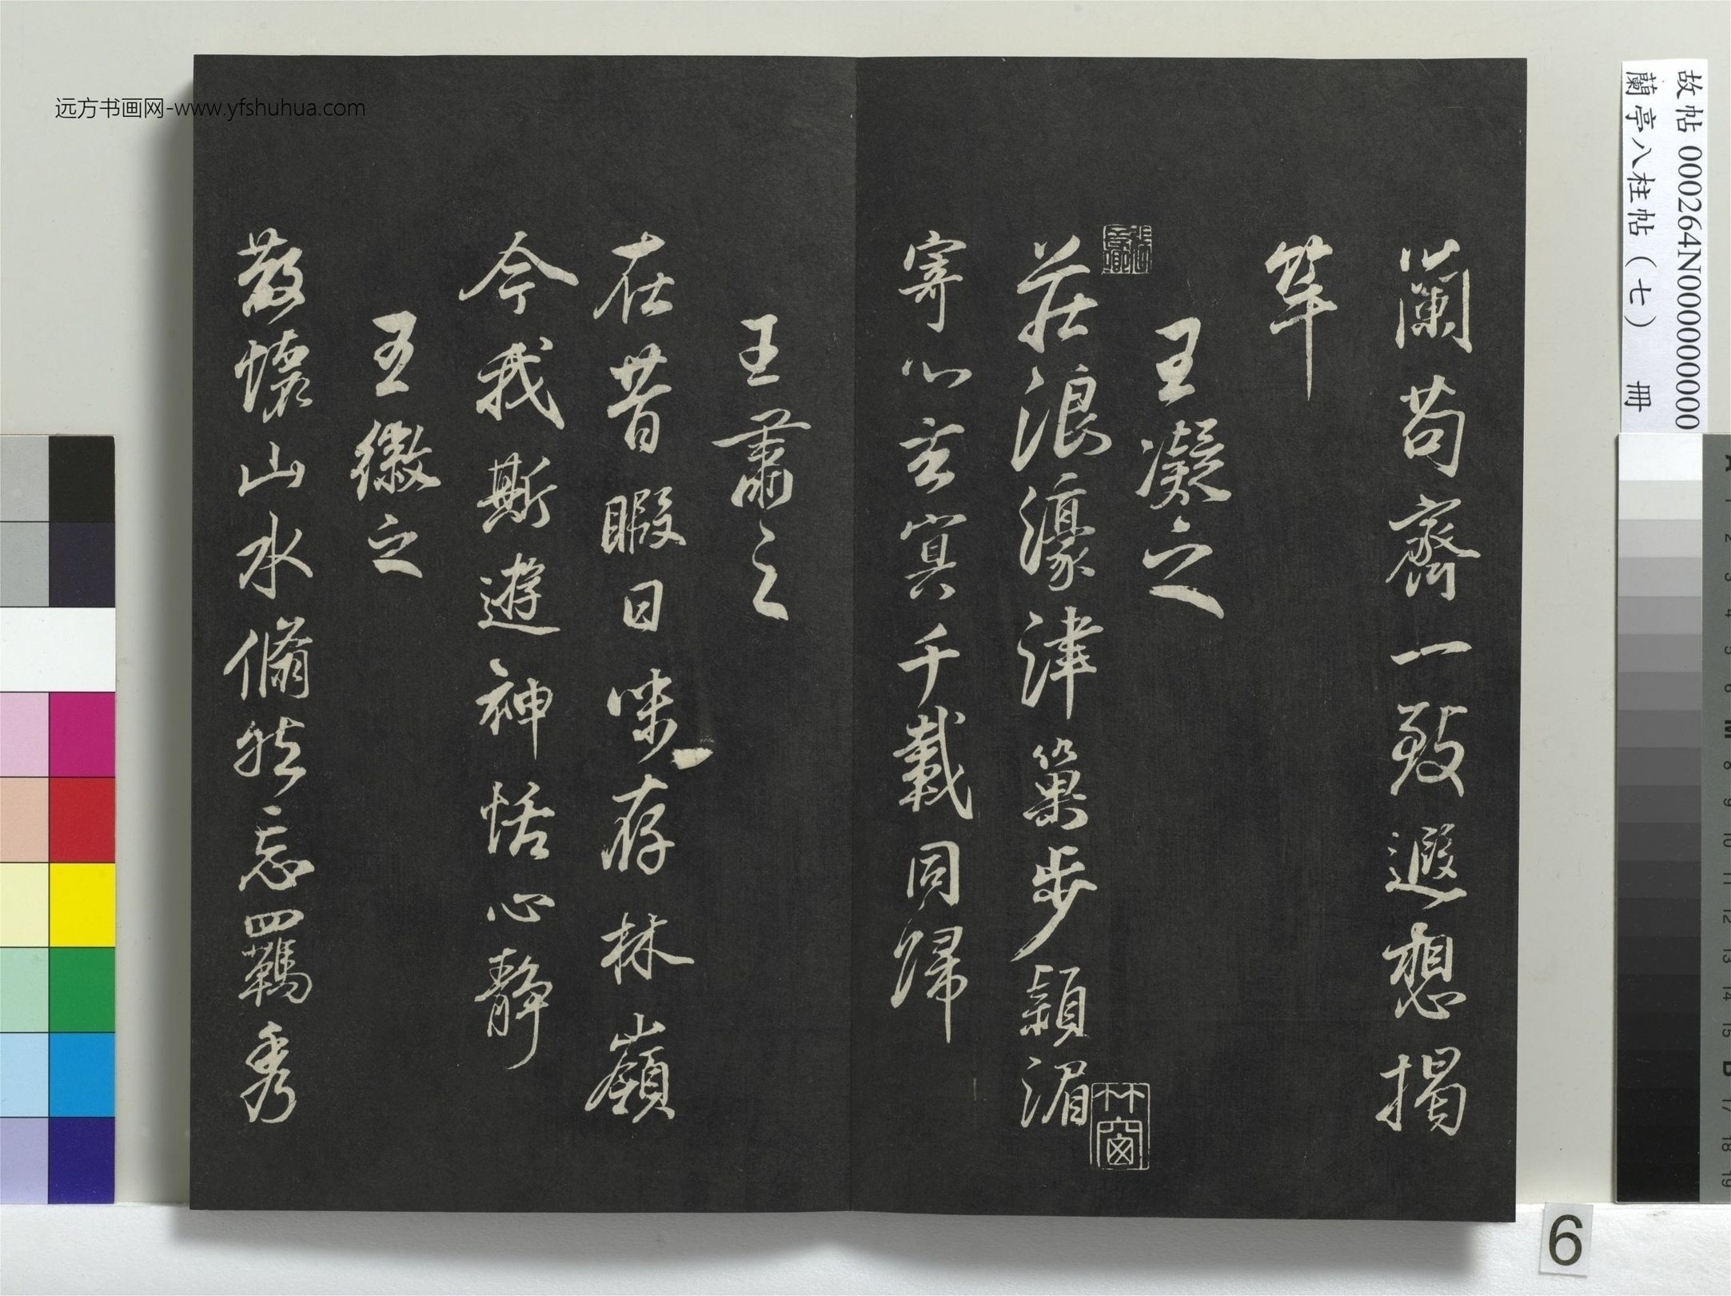 蘭芶齊一致遐想揭
竿
王凝之
莊浪濠津巢步潁湄
寄心玄冥千載同歸
王肅之
在昔暇日味存林嶺
今我斯遊神恬心靜
王徽之
散懷山水翛然忘羈秀
林
窗
远方书画网-www.yfshuhua.com
故帖 000264N000000000
蘭亭八柱帖（七） 冊
6